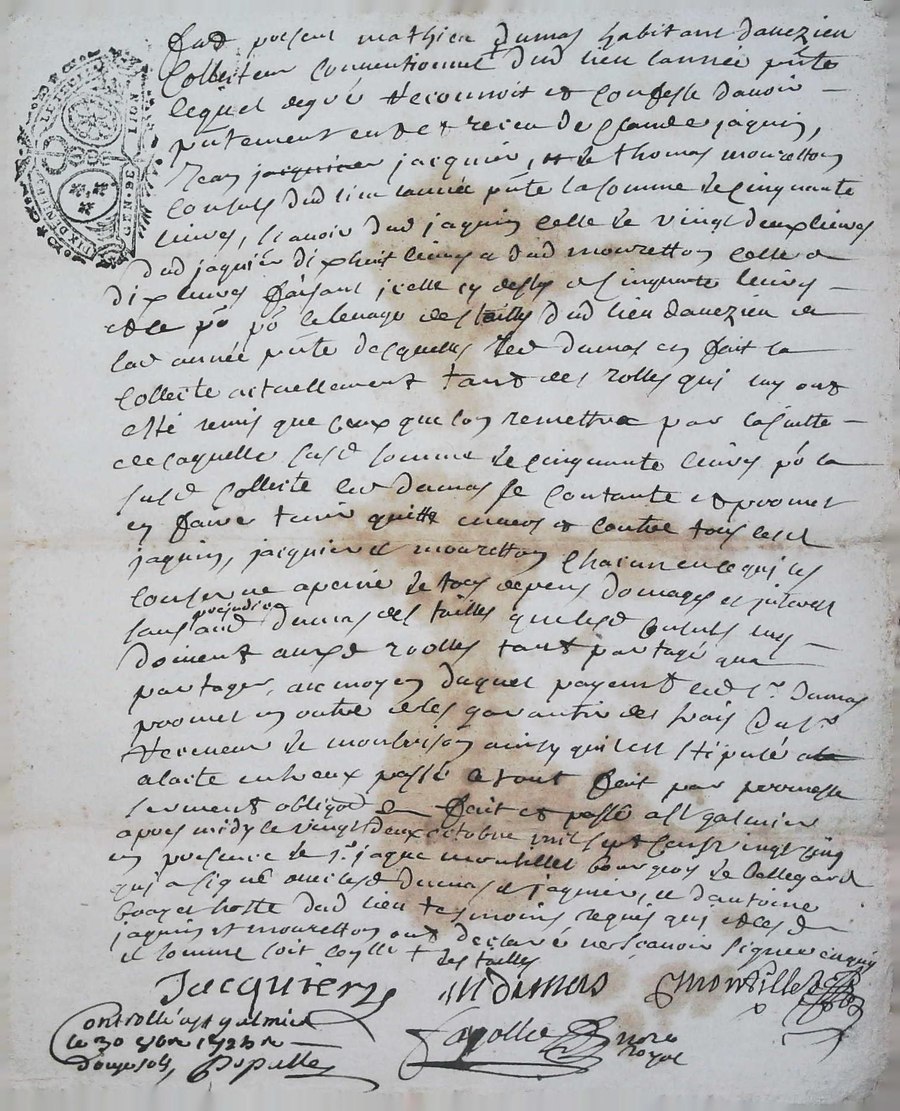 GEN. DE LION
DIX DENIERS
fud present mathieu Dumas habitant davezieu
Collecteur Conventionnel dud lieu lannée pnte
lequel degré Reconnoit et Confesse davoir
pntement eu et receu de Claude jaquin,
Jean jacquier, et de thomas mouretton
Consuls dud lieu lannée pnte la somme de Cinquante
livres, scavoir dud jaquin celle de vingt deux livres
dud jaquier dix huit livres et dud mouretton celle de
Dix livres faisant jcelle de cinquante livres
et ce po le levage des tailles dud lieu davezieu de
lad année pnte desquelles led dumas en fait la
Collecte actuellement tant des rolles qui luy ont
esté remis que ceux que lon remettra par la suitte
de laquelle susd somme de cinquante livres po la
susd Collecte led Dumas se contante et promet
en faire tenir quitte envers et contre tous lesd
jaquin, jacquier et mouretton Chacun en ce qui les
Conserne a peine de tous depens domages et interest
sans prejudice aud dumas des tailles que lesd Consuls luy
doivent auxd rolles tant partagé que
partager, au moyen duquel payemt led Sr Dumas
promet en outre de les garantir des frais du Sr
Receveur de montbrison ainsy quil est stipulé
a lacte entreux passé a tout fait par promesse
serment obligaon &a fait et passé a St galmier
apres midy le vingt deux octobre mil sept cent vingt cinq
en presence de Sr jaque montillet bourgeois de bellegard
qui a signé avec led Dumas et jaquier, et dantoine
boayet hoste dud lieu tesmoins requis qui et lesd
jaquin et mouretton ont declaré ne scavoir signer enquis
et somme soit
les tailles
Jacquier
m Dumas
Montillet
Controllé a St galmier
le 30 1725
Fayolle
nore
royal